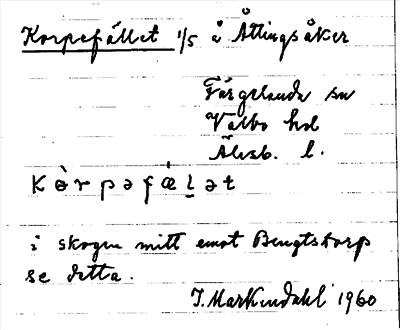 Korpefället 1/5 å Åttingsåker
Färgelanda sn
Valbo hd
Älvsb. l.
Kɵ̀rpəfǽḻət
i skogen mitt emot Bengtstorp
se detta.
J. Markendahl 1960